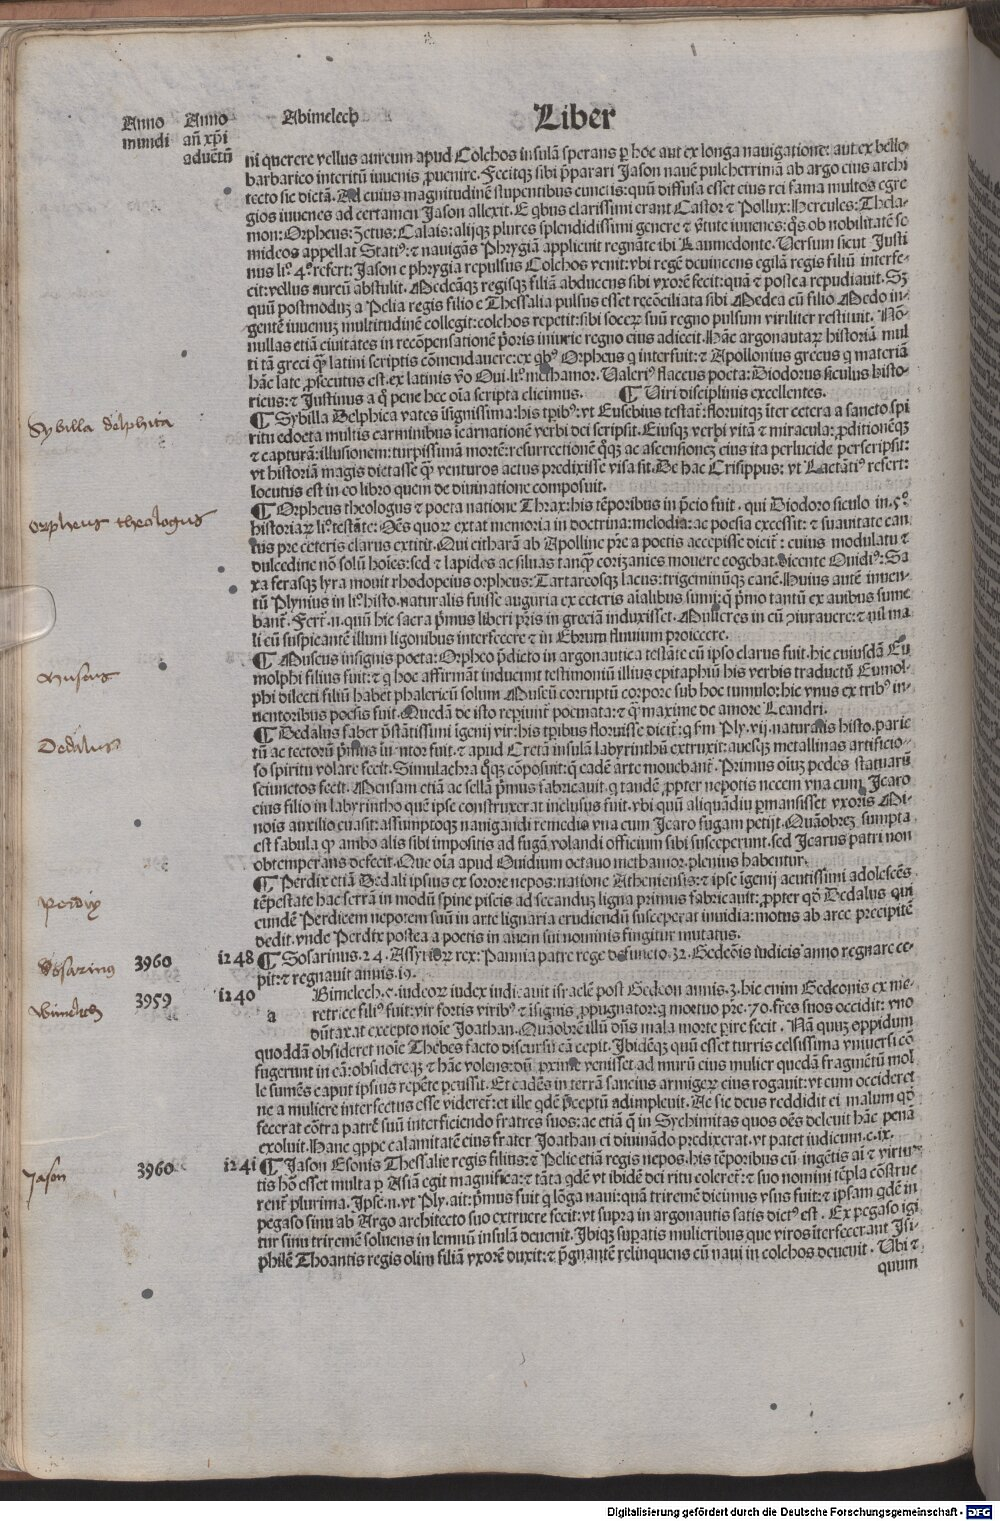 Liber
Abimelech
Anno mundi
Anno añ xp̄i aduētū
ni querere vellus aureum apud Colchos insulā sperans ꝑ hoc aut ex longa nauigatione: aut ex bello
barbarico interitū iuuenis ꝓuenire. Fecitqꝫ sibi p̄parari Jason nauē pulcherrimā ab argo eius archi
tecto sic dictā. Ad cuius magnitudinē stupentibus cunctis: quū diffusa esset eius rei fama multos egre
gios iuuenes ad certamen Jason allexit. E qbus clarissimi erant Castor ⁊ Pollux: Hercules: Thela
mon: Orpheus: Zetus: Calais: alijqꝫ plures splendidissimi genere ⁊ v̄tute iuuenes: q̄s ob nobilitatē se
mideos appellat Statiꝰ: ⁊ nauigās Phrygiā applicuit regnāte ibi Laumedonte. Versum sicut Justi
nus li.º 4.º refert: Jason e phrygia repulsus Colchos venit: vbi regē deuincens egilā regis filiū interfe-
cit: vellus aureū abstulit. Medeāqꝫ regisqꝫ filiā abducens sibi vxorē fecit: quā ⁊ postea repudiauit. Sꝫ
quū postmoduꝫ a Pelia regis filio e Thessalia pulsus esset recōciliata sibi Medea cū filio Medo in-
gentē iuuenuꝫ multitudinē collegit: colchos repetit: sibi soceꝝ suū regno pulsum viriliter restituit. Nō-
nullas etiā ciuitates in recōpensationē p̄oris iniurie regno eius adiecit. Hāc argonautaꝝ historiā mul
ti tā greci q̄ꝫ latini scriptis cōmendauere: ex qbꝰ Orpheus q interfuit: ⁊ Apollonius grecus q materiā
hāc late ꝓsecutus est. ex latinis v̄o Oui. li.º methamor. Valeriꝰ flaccus poeta: Diodorus siculus histo-
ricus: ⁊ Justinus a q̄ pene hec oīa scripta elicimus. ¶ Viri disciplinis excellentes.
Sybilla delphica
¶ Sybilla Delphica vates īsignissima: his tpibꝰ: vt Eusebius testat᷑: floruit: q īter cetera a sancto spi
ritu edocta multis carminibus īcarnationē verbi dei scripsit. Eiusqꝫ verbi vitā ⁊ miracula: ꝓditionēqꝫ
⁊ capturā: illusionem: turpissimā mortē: resurrectionē q̄qꝫ ac ascensioneꝫ eius ita perlucide perscripsit:
vt historiā magis dictasse q̄ꝫ venturos actus predixisse visa sit. De hac Crisippus: vt Lactātiꝰ refert:
locutus est in eo libro quem de diuinatione composuit.
orpheus theologus
¶ Orpheus theologus ⁊ poeta natione Thrax: his tēporibus in p̄cio fuit. qui Diodoro siculo in. 5.º
historiaꝝ li.º testāte: Oēs quoꝝ extat memoria in doctrina: melodia: ac poesia excessit: ⁊ suauitate can
tus pre ceteris clarus extitit. Qui citharā ab Apolline p̄re a poetis accepisse dicit᷑: cuius modulatu ⁊
dulcedine nō solū hoīes: sed ⁊ lapides ac siluas tanqꝫ corizantes mouere cogebat. dicente Ouidiꝰ: Sa
xa ferasqꝫ lyra mouit rhodopeius orpheus: Tartareosqꝫ lacus: trigeminūqꝫ canē. Huius autē inuen-
tū Plynius in li.º histo. naturalis fuisse auguria ex ceteris aīalibus sumi: q̄ p̄mo tantū ex auibus sume
bant᷑. Fert᷑. n. quū hic sacra p̄mus liberi p̄ris in greciā induxisset. Mulieres in eū ꝯiurauere: ⁊ nil ma
li eū suspicantē illum ligonibus interfecere ⁊ in Ebrum fluuium proiecere.
Museus
¶ Museus insignis poeta: Orpheo p̄dicto in argonautica testāte cū ipso clarus fuit. hic cuiusdā Eu
molphi filius fuit: ⁊ q hoc affirmāt inducunt testimoniū illius epitaphiū his verbis traductū Eumol-
phi dilecti filiū habet phalericū solum Museū corruptū corpore sub hoc tumulo: hic vnus ex tribꝰ in-
uentoribus poesis fuit. Quedā de isto reꝑiunt᷑ poemata: ⁊ q̄ꝫ maxime de amore Leandri.
Dedalus
¶ Dedalus faber p̄stātissimi īgenij vir: his tpibus floruisse dicit᷑: q fm Ply. vij. naturalis histo. parie
tū ac tectorū p̄mus inuentor fuit. ⁊ apud Cretā insulā labyrinthū extruxit: auesqꝫ metallinas artificio-
so spiritu volare fecit. Simulachra q̄qꝫ cōposuit: q̄ eadē arte mouebant᷑. Primus oīuꝫ pedes statuarū
seiunctos fecit. Mensam etiā ac sellā p̄mus fabricauit. q tandē ꝓpter nepotis necem vna cum Jcaro
eius filio in labyrintho quē ipse construxerat inclusus fuit. vbi quū aliquādiu ꝑmansisset vxoris Mi-
nois auxilio euasit: assumptoqꝫ nauigandi remedio vna cum Jcaro fugam petijt. Quāobreꝫ sumpta
est fabula qꝫ ambo alis sibi impositis ad fugā volandi officium sibi susceperunt. sed Jcarus patri non
obtemperans defecit. Que oīa apud Ouidium octauo methamor. plenius habentur.
perdix
¶ Perdix etiā Dedali ipsius ex sorore nepos: natione Atheniensis: ⁊ ipse īgenij acutissimi adolescēs
tēpestate hac serrā in modū spine piscis ad secanduꝫ ligna primus fabricauit: ꝓpter qđ Dedalus qui
eundē Perdicem nepotem suū in arte lignaria erudiendū susceperat inuidia: motus ab arce precipitē
dedit. vnde Perdix postea a poetis in auem sui nominis fingitur mutatus.
Sosarinus
3960 1248
¶ Sosarinus. 24. Assyrioꝝ rex: Pannia patre rege defuncto. 32. Gedeōis iudicis anno regnare ce-
pit: ⁊ regnauit annis. 19.
3959 1240
a Bimelech. c. iudeoꝝ iudex iudicauit israelē post Gedeon annis. 3. hic enim Gedeonis ex me-
retrice filiꝰ fuit: vir fortis viribꝰ ⁊ īsignis ꝓpugnator: q mortuo pr̄e. 70. fr̄es suos occidit: vno
dūtaxat excepto noīe Joathan. Quāobrē illū dn̄s mala morte ꝑire fecit. Nā quuꝫ oppidum
quoddā obsideret noīe Thebes facto discursū eā cepit. Ibidēqꝫ quū esset turris celsissima vniuersi cō
fugerunt in eā: obsidereqꝫ ⁊ hāc volens: dū ꝓxime venisset ad murū eius mulier quedā fragmētū mol
le sumēs caput ipsius repēte ꝑcussit. Et cadēs in terrā saucius armigeꝝ eius rogauit: vt cum occideret
ne a muliere interfectus esse videret᷑: et ille qdē p̄ceptū adimpleuit. Ac sic deus reddidit ei malum qđ
fecerat cōtra patrē suū interficiendo fratres suos: ac etiā q̄ in Sychimitas quos oēs deleuit hāc penā
exoluit. Hanc qppe calamitatē eius frater Joathan ei diuinādo predixerat. vt patet iudicum. c. ix.
Jason
3960 1241
¶ Jason Esonis Thessalie regis filius: ⁊ Pelie etiā regis nepos. his tēporibus cū ingētis aī ⁊ virtu-
tis hō esset multa ꝑ Asiā egit magnifica: ⁊ tāta qdē vt ibidē dei ritu coleret᷑: ⁊ suo nomini tēpla cōstrue
rent᷑ plurima. Ipse. n. vt Ply. ait: p̄mus fuit q lōga naui: quā triremē dicimus vsus fuit: ⁊ ipsam qdē in
pegaso sinu ab Argo architecto suo extruere fecit: vt supra in argonautis satis dictꝰ est. Ex pegaso igi
tur sinu triremē soluens in lemnū insulā deuenit. Ibiqꝫ suꝑatis mulieribus que viros īterfecerant Jsi-
philē Thoantis regis olim filiā vxorē duxit: ⁊ p̄gnantē relinquens cū naui in colchos deuenit. Vbi ⁊
quum
Digitalisierung gefördert durch die Deutsche Forschungsgemeinschaft - DFG